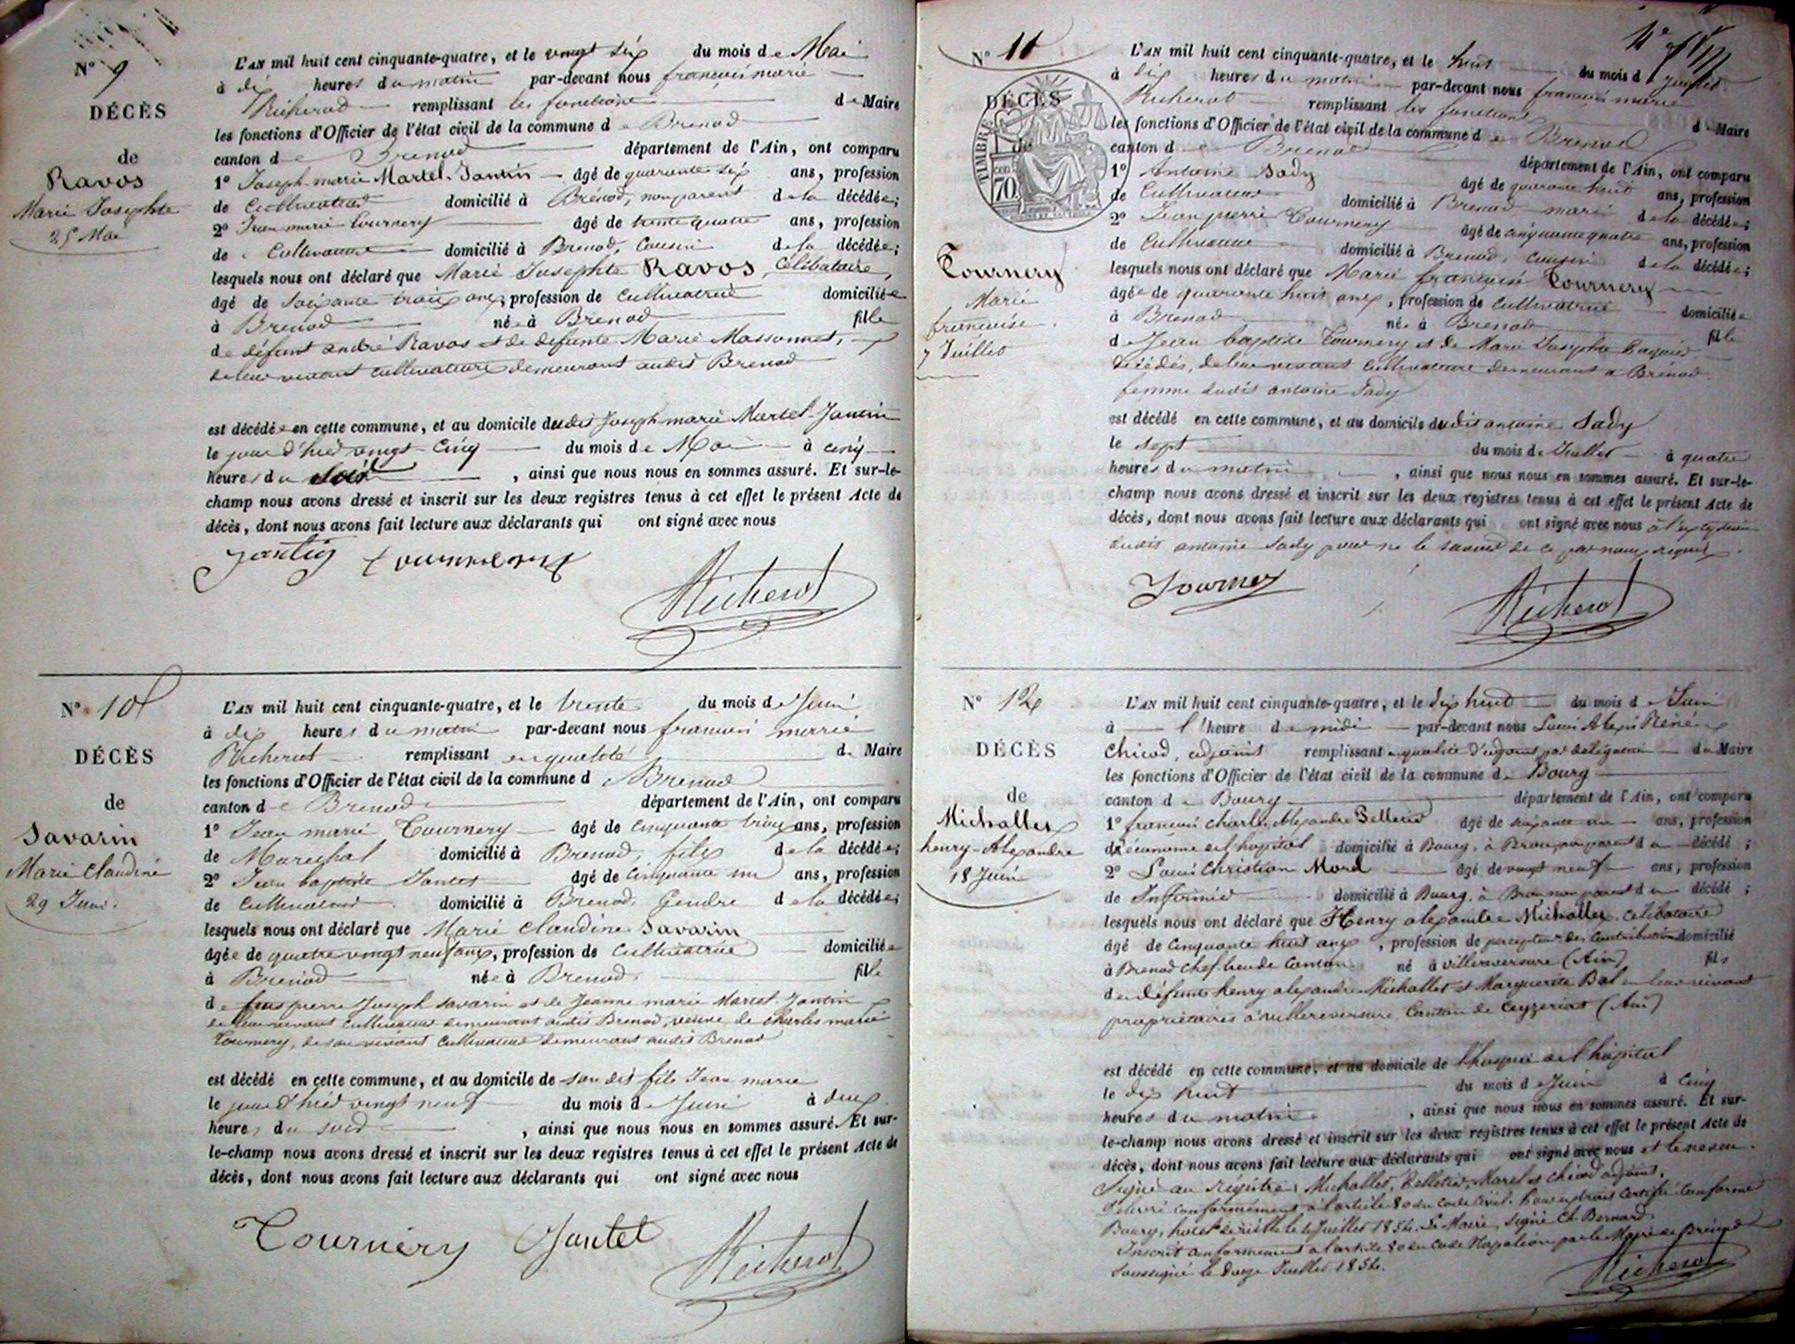 N° 9
DÉCÈS
de
Ravos
Marie Josephte
25 Mai
L'AN mil huit cent cinquante-quatre, et le vingt six du mois de Mai
à dix heures du matin par-devant nous françois marie
Richerot remplissant les fonctions de Maire
les fonctions d'Officier de l'état civil de la commune de Brenod
canton de Brenod département de l'Ain, ont comparu
1° Joseph marie Martel-Jantin âgé de quarante six ans, profession
de Cultivateur domicilié à Brénod, non parent de la décédée;
2° Jean marie Tournery âgé de trente quatre ans, profession
de Cultivateur domicilié à Brenod, Cousin de la décédée;
lesquels nous ont déclaré que Marie Josephte Ravos, Célibataire,
âgé de soixante trois ans, profession de Cultivatrice domiciliée
à Brenod née à Brenod fille
de défunt andré Ravos et de défunte Marie Massonnet,
de leur vivant cultivateurs demeurant audit Brenod
est décédée en cette commune, et au domicile dudit Joseph marie Martel-Jantin
le jour d'hier vingt-cinq du mois de Mai à cinq
heures du soir, ainsi que nous nous en sommes assuré. Et sur-le-
champ nous avons dressé et inscrit sur les deux registres tenus à cet effet le présent Acte de
décès, dont nous avons fait lecture aux déclarants qui ont signé avec nous
Jantin Tournery
Richerot
N° 10
DÉCÈS
de
Savarin
Marie Claudine
29 Juin.
L'AN mil huit cent cinquante-quatre, et le trente du mois de Juin
à dix heures du matin par-devant nous françois marie
Richerot remplissant en qualité de Maire
les fonctions d'Officier de l'état civil de la commune de Brenod
canton de Brenod département de l'Ain, ont comparu
1° Jean marie Tournery âgé de cinquante trois ans, profession
de Marechal domicilié à Brenod, fils de la décédée;
2° Jean baptiste Jantet âgé de cinquante un ans, profession
de Cultivateur domicilié à Brenod, Gendre de la décédée;
lesquels nous ont déclaré que Marie Claudine Savarin
âgée de quatre vingt neuf ans, profession de Cultivatrice domiciliée
à Brenod née à Brenod fille
de feus pierre Joseph Savarin et de Jeanne marie Martel-Jantin
de leur vivant cultivateurs demeurant audit Brenod, veuve de Charles marie
Tournery, de son vivant Cultivateur demeurant audit Brenod
est décédé en cette commune, et au domicile de son dit fils Jean marie
le jour d'hier vingt neuf du mois de Juin à deux
heures du soir, ainsi que nous nous en sommes assuré. Et sur-
le-champ nous avons dressé et inscrit sur les deux registres tenus à cet effet le présent Acte de
décès, dont nous avons fait lecture aux déclarants qui ont signé avec nous
Tournery Jantet
Richerot
N° 11
DÉCÈS
de
TIMBRE
70
Tournery
Marie
françoise.
7 Juillet
L'AN mil huit cent cinquante-quatre, et le huit du mois de Juillet
à dix heures du matin par-devant nous françois marie
Richerot remplissant les fonctions de Maire
les fonctions d'Officier de l'état civil de la commune de Brenod
canton de Brenod département de l'Ain, ont comparu
1° Antoine Sady âgé de quarante huit ans, profession
de Cultivateur domicilié à Brenod mari de la décédée;
2° Jean pierre Tournery âgé de cinquante quatre ans, profession
de Cultivateur domicilié à Brenod, cousin de la décédée;
lesquels nous ont déclaré que Marie françoise Tournery
âgée de quarante huit ans, profession de cultivatrice domiciliée
à Brenod née à Brenod fille
de Jean baptiste Tournery et de Marie Josephte
décédés, de leur vivant Cultivateurs demeurant à Brénod.
femme dudit antoine Sady
est décédé en cette commune, et au domicile dudit antoine Sady
le sept du mois de Juillet à quatre
heures du matin, ainsi que nous nous en sommes assuré. Et sur-le-
champ nous avons dressé et inscrit sur les deux registres tenus à cet effet le présent Acte de
décès, dont nous avons fait lecture aux déclarants qui ont signé avec nous à l'exception
dudit antoine Sady pour ne le savoir de ce par nous requis.
Tournery
Richerot
N° 12
DÉCÈS
de
Michallet
henry-Alexandre
18 Juin
L'AN mil huit cent cinquante-quatre, et le dix huit du mois de Juin
à l'heure de midi par-devant nous Louis Alexis Réné
Chicod, adjoint remplissant en qualité d'adjoint par délégation du Maire
les fonctions d'Officier de l'état civil de la commune de Bourg
canton de Bourg département de l'Ain, ont comparu
1° françois Charles Alexandre Pelletier âgé de soixante un ans, profession
d'économe de l'hôpital domicilié à Bourg, à Brou non parent du décédé;
2° Louis Christian Morel âgé de vingt neuf ans, profession
de Infirmier domicilié à Bourg, à Brou non parent du décédé;
lesquels nous ont déclaré que Henry alexandre Michallet, célibataire
âgé de cinquante huit ans, profession de percepteur des Contributions domicilié
à Brenod chef-lieu de Canton né à villereversure (Ain) fils
de défunts henry alexandre Michallet et Marguerite Bal de leur vivant
propriétaires à villereversure, Canton de Ceyzeriat (Ain)
est décédé en cette commune, et au domicile de l'hospice de l'hôpital
le dix huit du mois de Juin à cinq
heures du matin, ainsi que nous nous en sommes assuré. Et sur-
le-champ nous avons dressé et inscrit sur les deux registres tenus à cet effet le présent Acte de
décès, dont nous avons fait lecture aux déclarants qui ont signé avec nous et le neveu.
Signé au régistre: Michallet, Pelletier, Morel et Chicod adjoint,
Délivré conformément à l'article 80 du Code Civil. Pour extrait certifié conforme
Bourg, hotel de ville le 4 Juillet 1854. Le Maire, signé Ch. Bernard.
Inscrit conformément à l'article 80 du Code Napoléon par le Maire de Brénod
soussigné le douze Juillet 1854.
Richerot